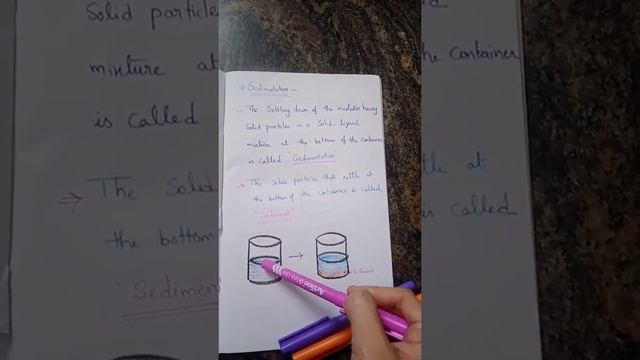 Sedimentation -
→ The Settling down of the insoluble heavy
Solid particles in a Solid-liquid
mixture at the bottom of the container
is called "Sedimentation
→ The Solid particles that settle at
the bottom of the container is called
"Sediment"
→ Sediment
Artline
Solid particles
mixture at
is called
→ The Solid
the bottom
"Sediment"
the container
ttle at
s called